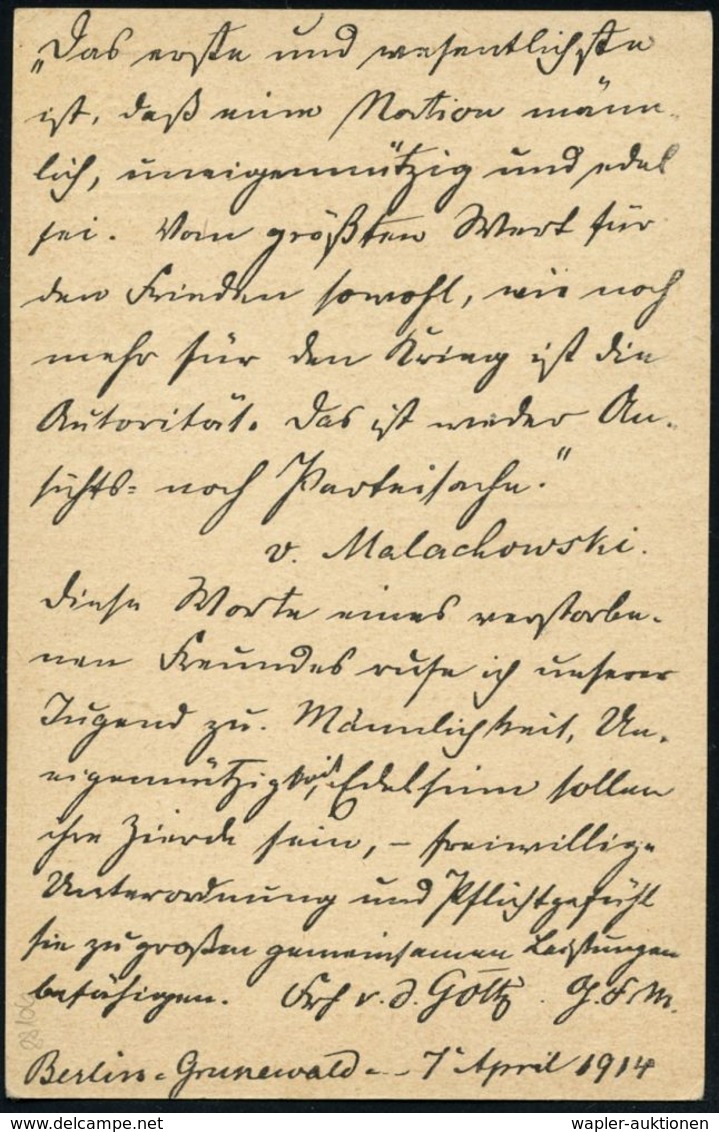 „Das erste und wesentlichste
ist, daß eine Nation männ-
lich, uneigennützig und edel
sei. Von größten Wert für
den Frieden sowohl, wie noch
mehr für den Krieg ist die
Autorität. Das ist weder An-
sichts- noch Parteisache."
v. Malachowski.
Diese Worte eines verstorbe-
nen Freundes rufe ich unserer
Jugend zu. Männlichkeit, Un-
eigennützigkeit, Edelsinn sollen
ihre Zierde sein, – freiwillige
Unterordnung und Pflichtgefühl
sie zu großen gemeinsamen Leistungen
befähigen. Frh v. d. Goltz. G. F M.
Berlin-Grunewald - 7 April 1914
wapler-auktionen